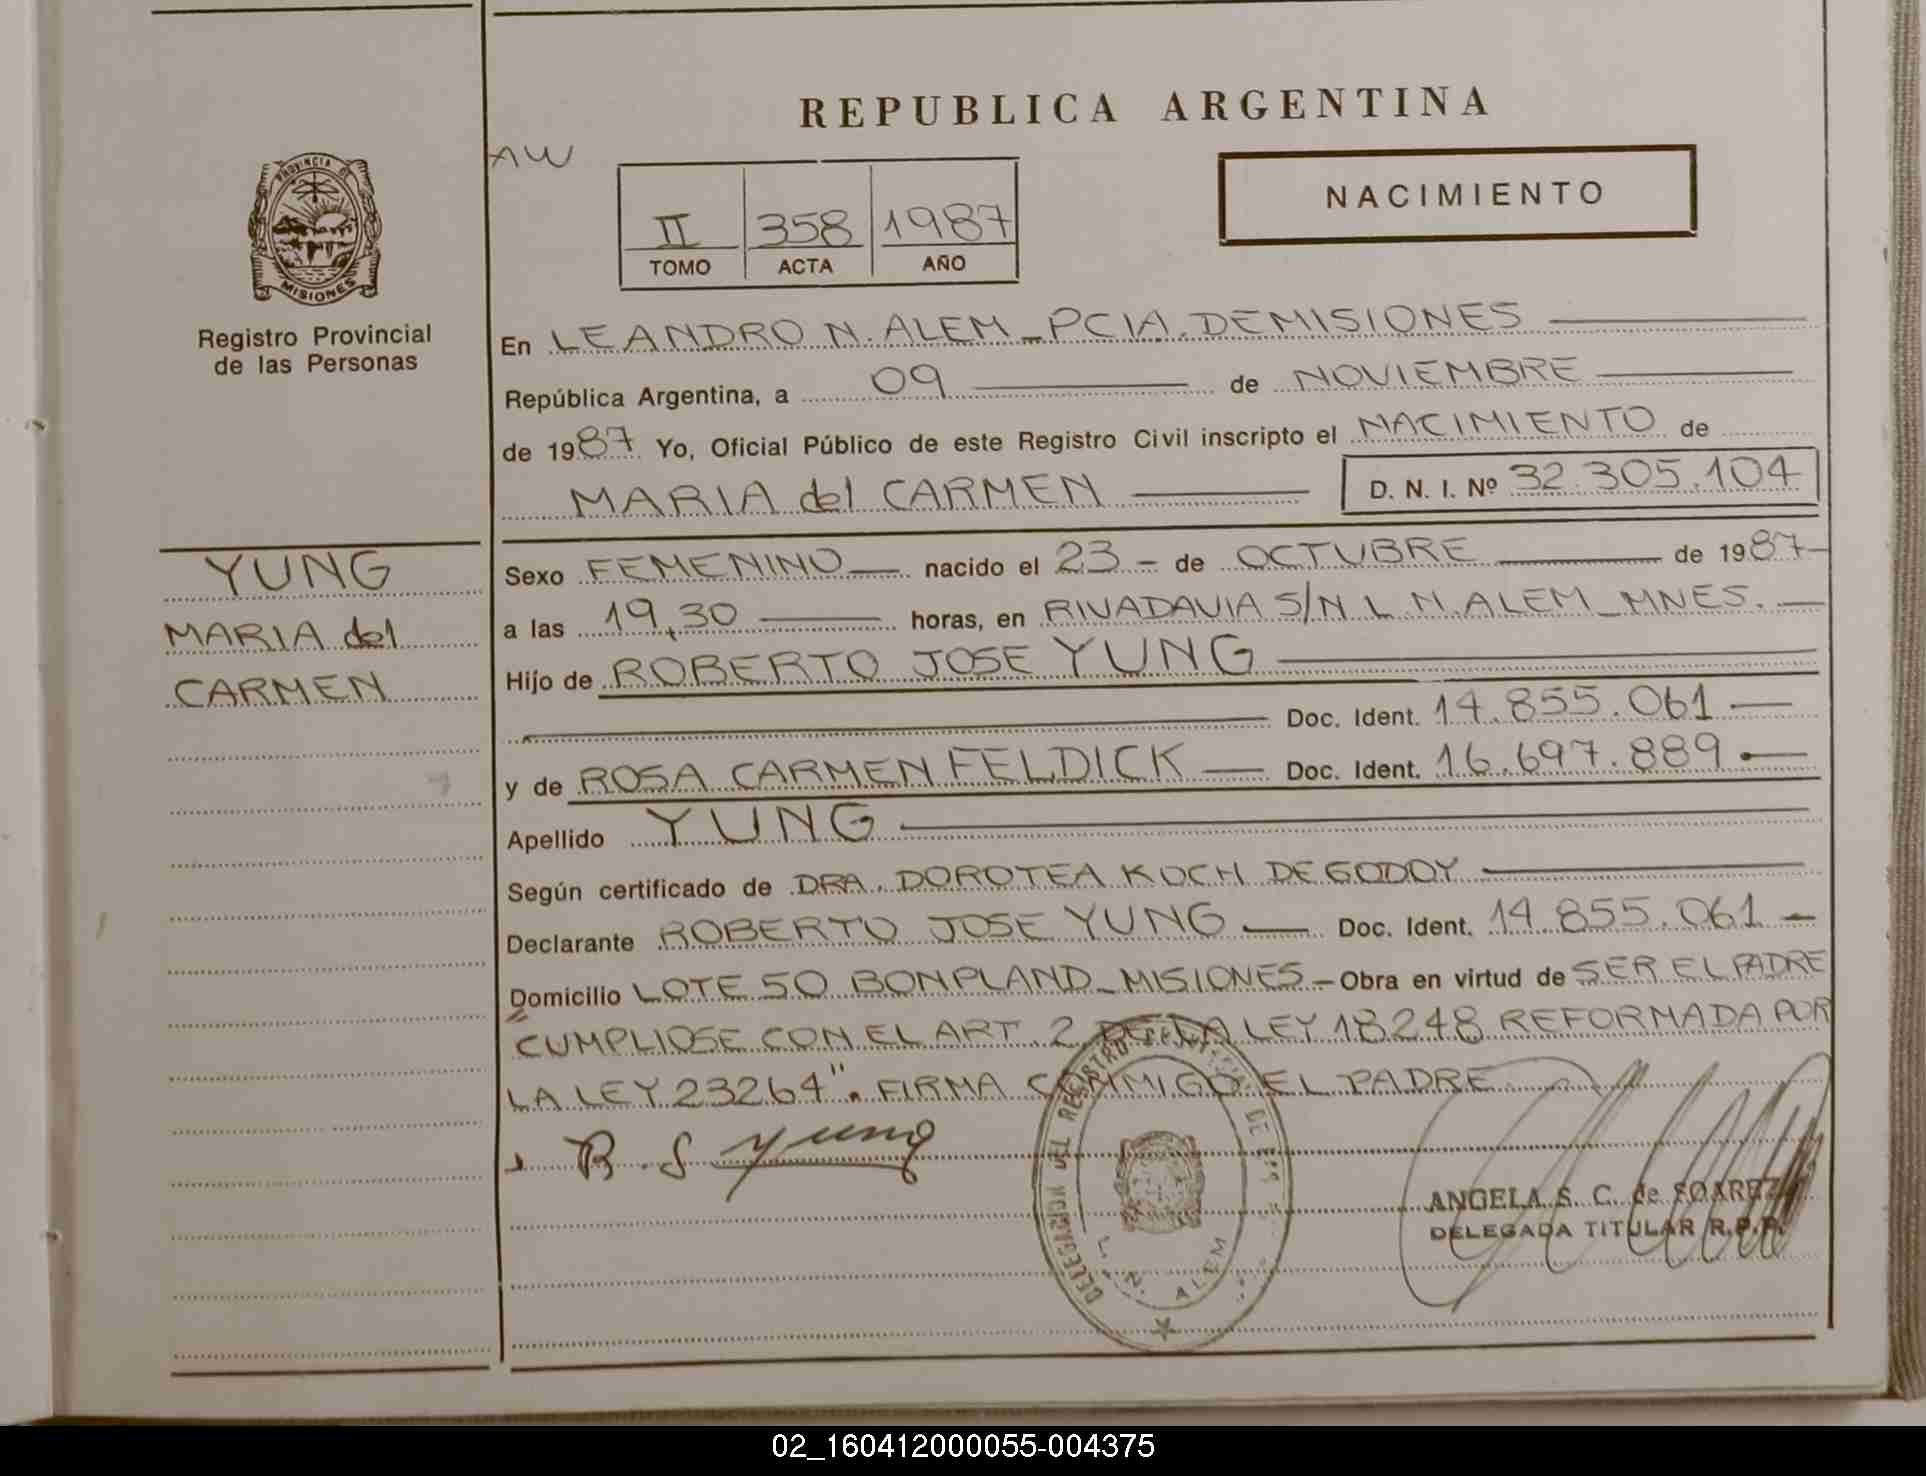 REPUBLICA ARGENTINA
AW
PROVINCIA DE
MISIONES
Registro Provincial
de las Personas
II 358 1987
TOMO ACTA AÑO
NACIMIENTO
En LEANDRO N. ALEM - PCIA. DE MISIONES
República Argentina, a 09 de NOVIEMBRE
de 1987 Yo, Oficial Público de este Registro Civil inscripto el NACIMIENTO de
MARIA del CARMEN D. N. I. Nº 32.305.104
YUNG
MARIA del
CARMEN
Sexo FEMENINO nacido el 23 - de OCTUBRE de 1987
a las 19,30 horas, en RIVADAVIA S/N L. N. ALEM - MNES.
Hijo de ROBERTO JOSE YUNG
Doc. Ident. 14.855.061
y de ROSA CARMEN FELDICK Doc. Ident. 16.697.889
Apellido YUNG
Según certificado de DRA. DOROTEA KOCH DE GODOY
Declarante ROBERTO JOSE YUNG Doc. Ident. 14.855.061
Domicilio LOTE 50 BONPLAND - MISIONES - Obra en virtud de SER EL PADRE
CUMPLIOSE CON EL ART. 2 DE LA LEY 18248 REFORMADA POR
LA LEY 23264". FIRMA CONMIGO EL PADRE
R. J Yung
DELEGACION DEL REGISTRO
L. N. ALEM
ANGELA S. C. de SOAREZ
DELEGADA TITULAR R.P.P.
02_160412000055-004375